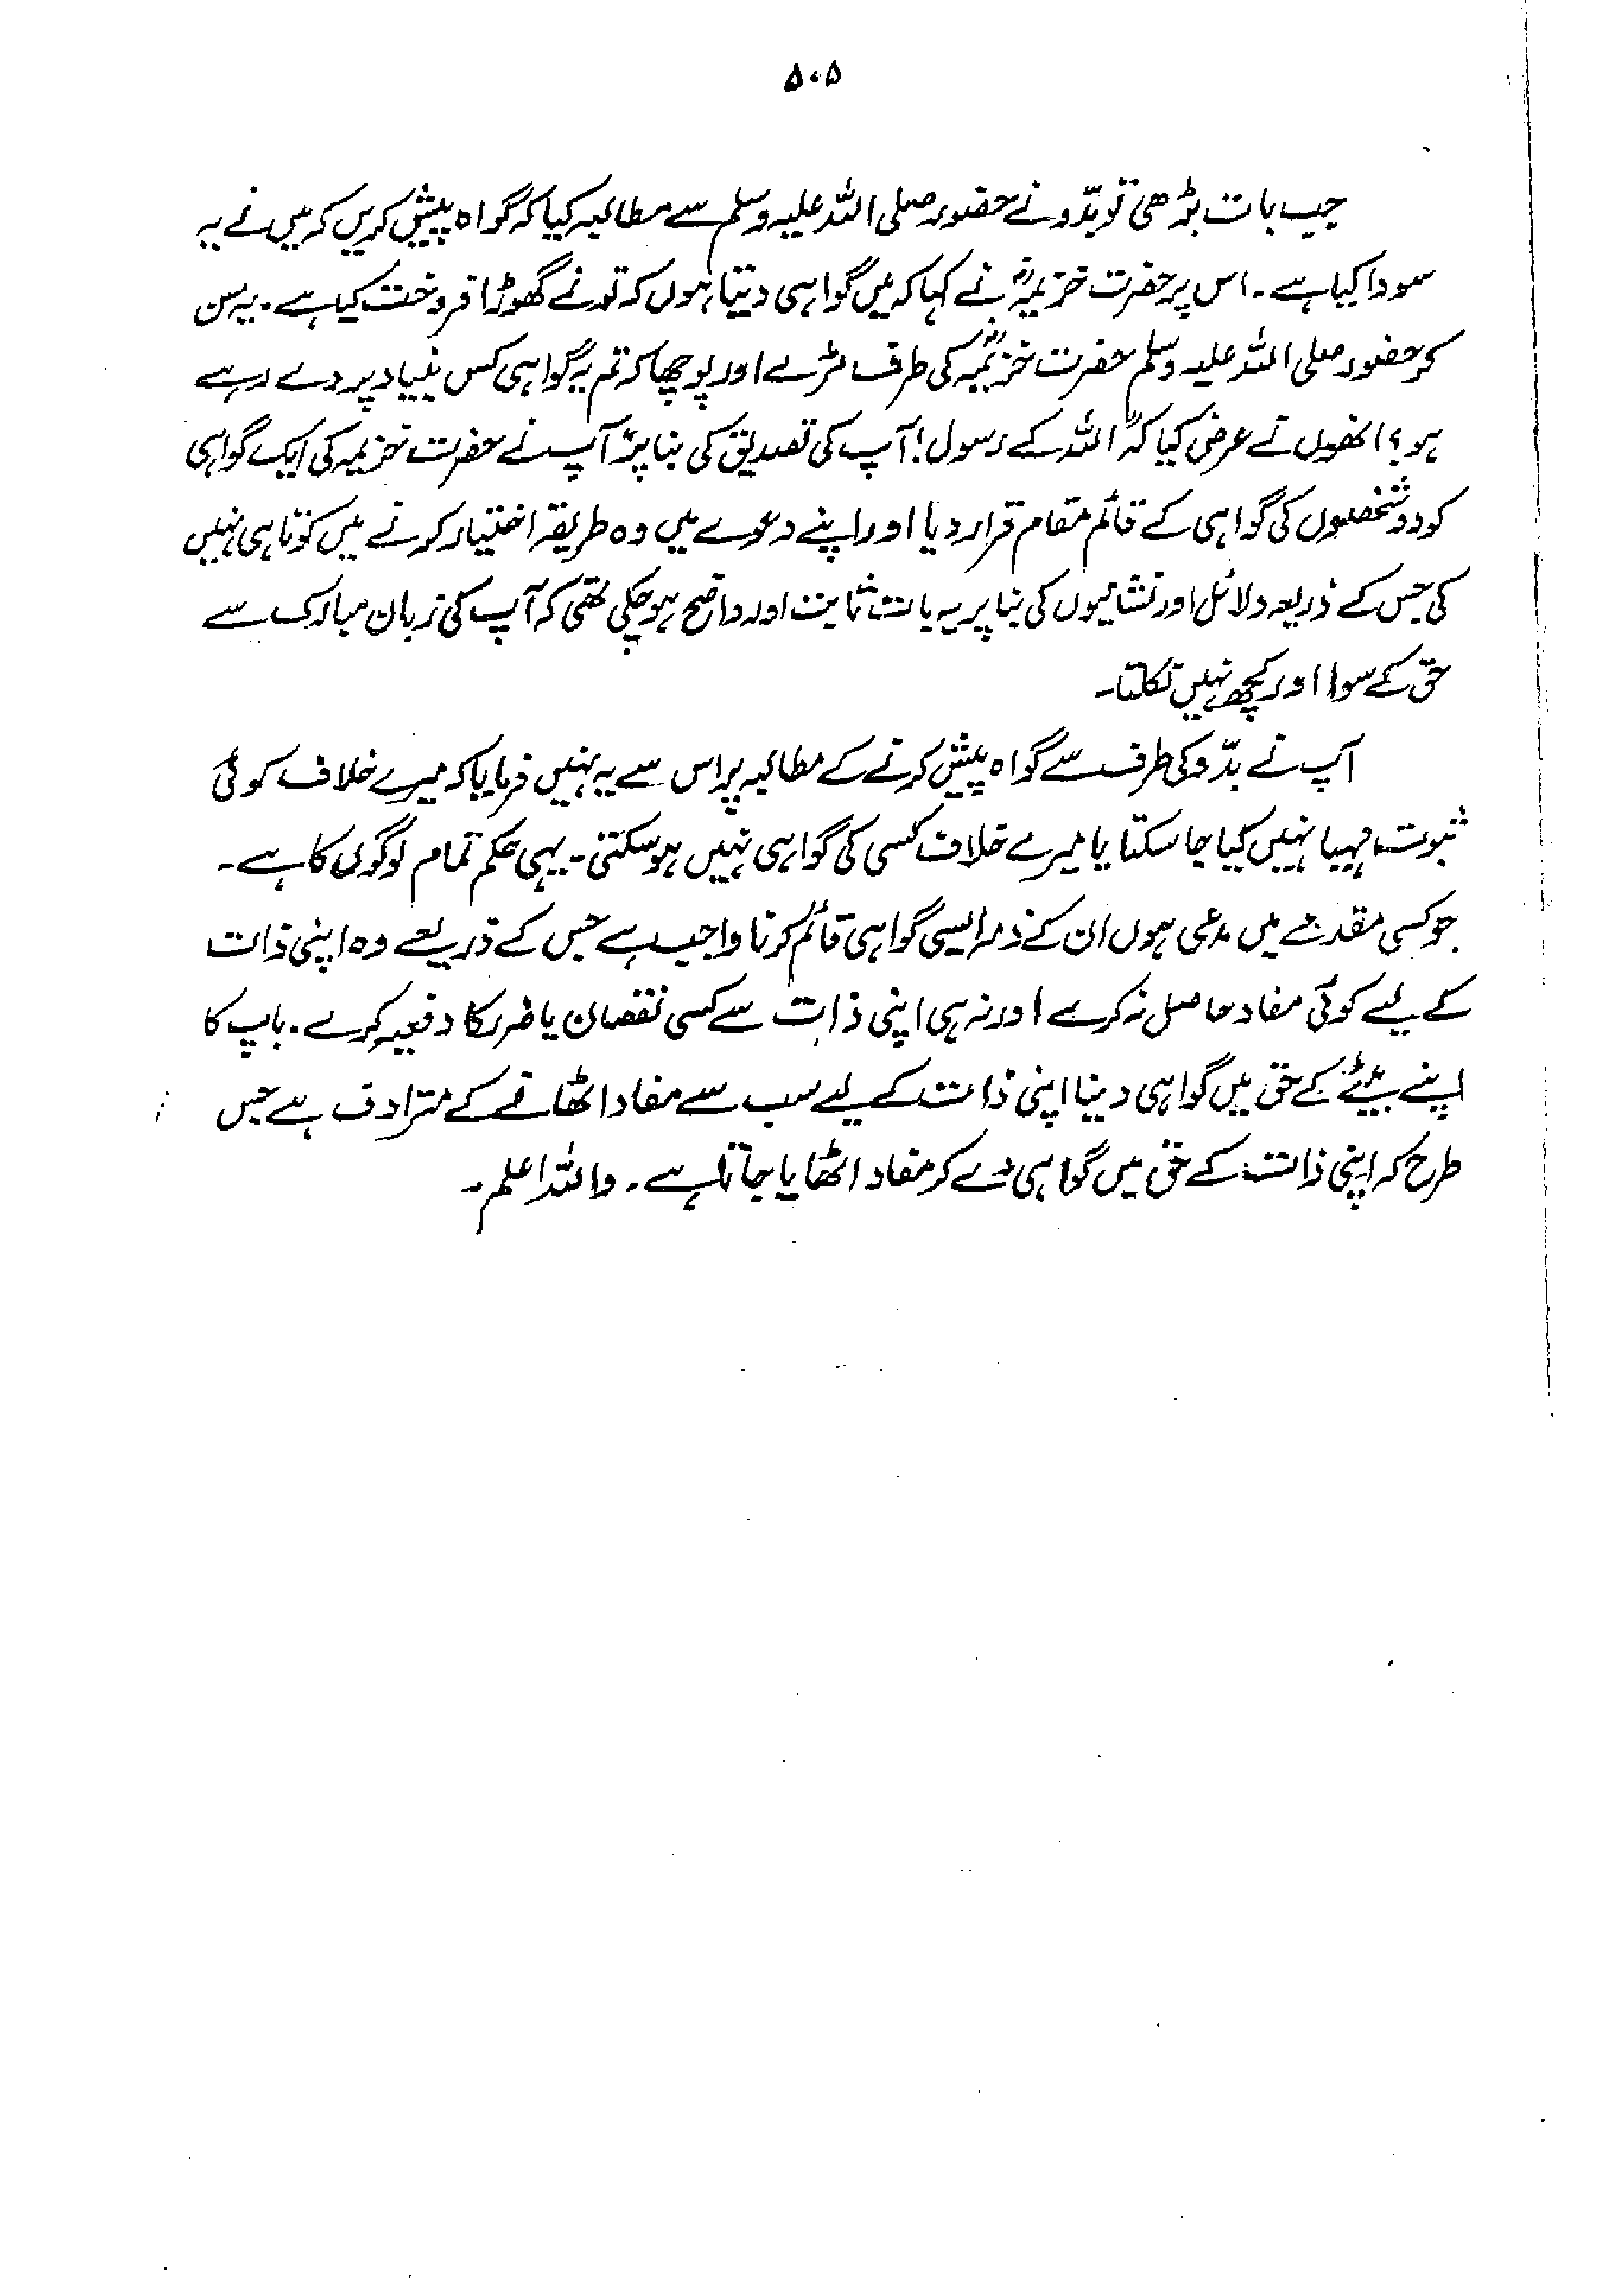 ۵۰۵
جب بات بڑھی تو بدّو نے حضور صلی اللہ علیہ وسلم سے مطالبہ کیا کہ گواہ پیش کریں کہ میں نے یہ
سودا کیا ہے۔ اس پر حضرت خزیمہؓ نے کہا کہ میں گواہی دیتا ہوں کہ تو نے گھوڑا فروخت کیا ہے۔ یہ سن
کر حضور صلی اللہ علیہ وسلم حضرت خزیمہؓ کی طرف مڑے اور پوچھا کہ تم یہ گواہی کس بنیاد پر دے رہے
ہو؟ انھوں نے عرض کیا کہ "اللہ کے رسول! آپ کی تصدیق کی بنا پر" آپ نے حضرت خزیمہ کی ایک گواہی
کو دو شخصوں کی گواہی کے قائم مقام قرار دیا اور اپنے دعوے میں وہ طریقہ اختیار کرنے میں کوتاہی نہیں
کی جس کے ذریعہ دلائل اور نشانیوں کی بنا پر یہ بات ثابت اور واضح ہو چکی تھی کہ آپ کی زبان مبارک سے
حق کے سوا اور کچھ نہیں نکلتا۔
آپ نے بدّو کی طرف سے گواہ پیش کرنے کے مطالبہ پر اس سے یہ نہیں فرمایا کہ میرے خلاف کوئی
ثبوت مہیا نہیں کیا جا سکتا یا میرے خلاف کسی کی گواہی نہیں ہو سکتی۔ یہی حکم تمام لوگوں کا ہے۔
جو کسی مقدمے میں مدعی ہوں ان کے ذمہ ایسی گواہی قائم کرنا واجب ہے جس کے ذریعے وہ اپنی ذات
کے لیے کوئی مفاد حاصل نہ کرے اور نہ ہی اپنی ذات سے کسی نقصان یا ضرر کا دفعیہ کرے۔ باپ کا
اپنے بیٹے کے حق میں گواہی دینا اپنی ذات کے لیے سب سے مفاد اٹھانے کے مترادف ہے جس
طرح کہ اپنی ذات کے حق میں گواہی دے کر مفاد اٹھایا جاتا ہے۔ واللہ اعلم۔